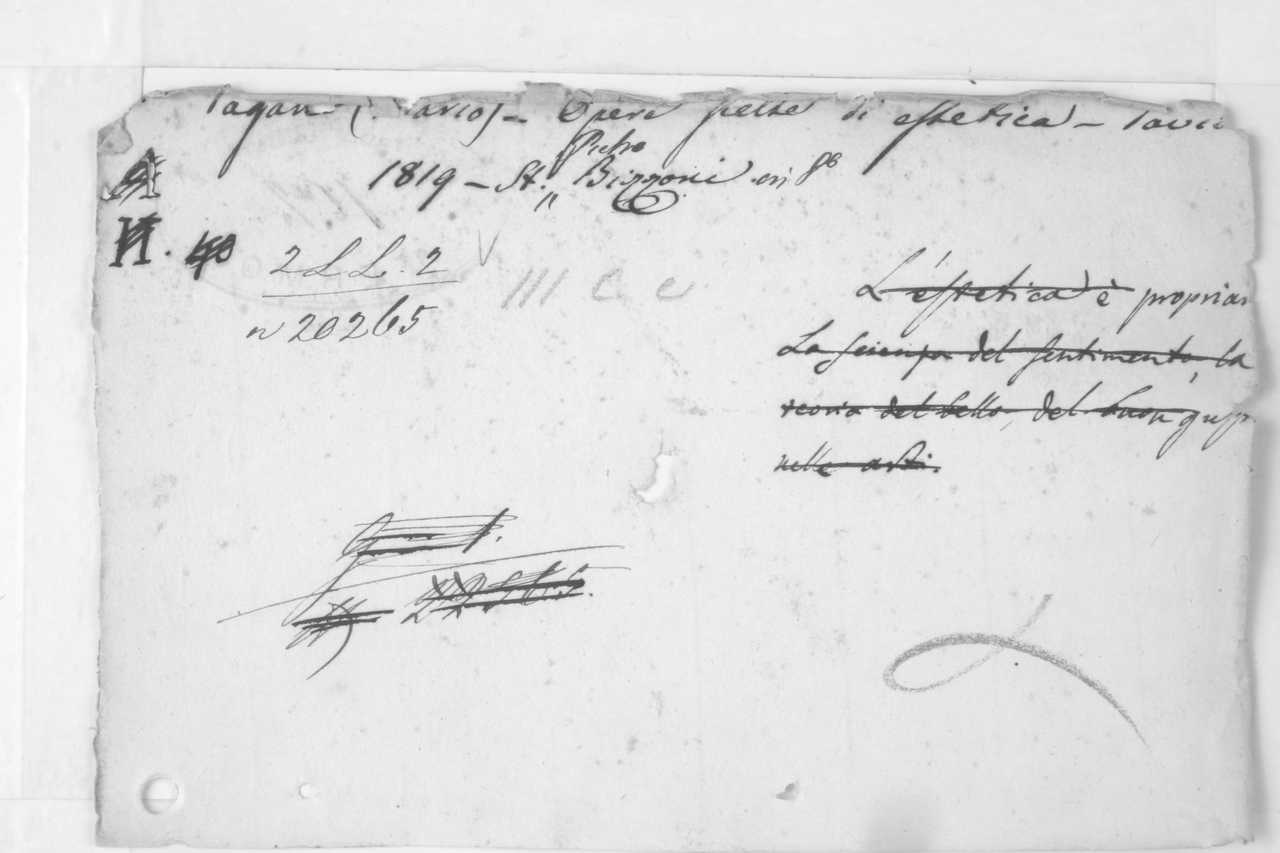 Pagan (Mario) – Opere scelte di estetica – Pavia
Pietro
1819 – St. " Bizzoni in 8º
N. 40
2 L L. 2 V
III C c
n 20265
L'estetica è propriam
La scienza del sentimento, la
teoria del bello, del buon gusto
nelle arti.